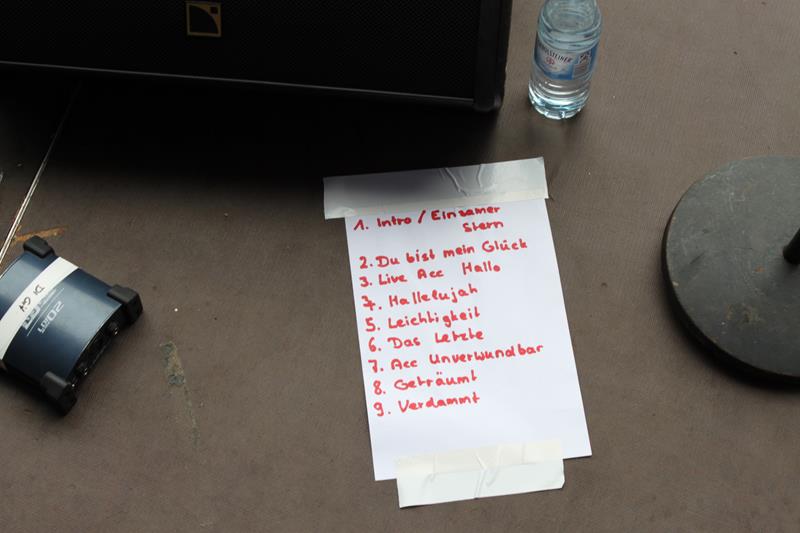 1. Intro / Einsamer
Stern
2. Du bist mein Glück
3. Live Acc Hallo
4. Hallelujah
5. Leichtigkeit
6. Das Letzte
7. Acc Unverwundbar
8. Geträumt
9. Verdammt
DI Git